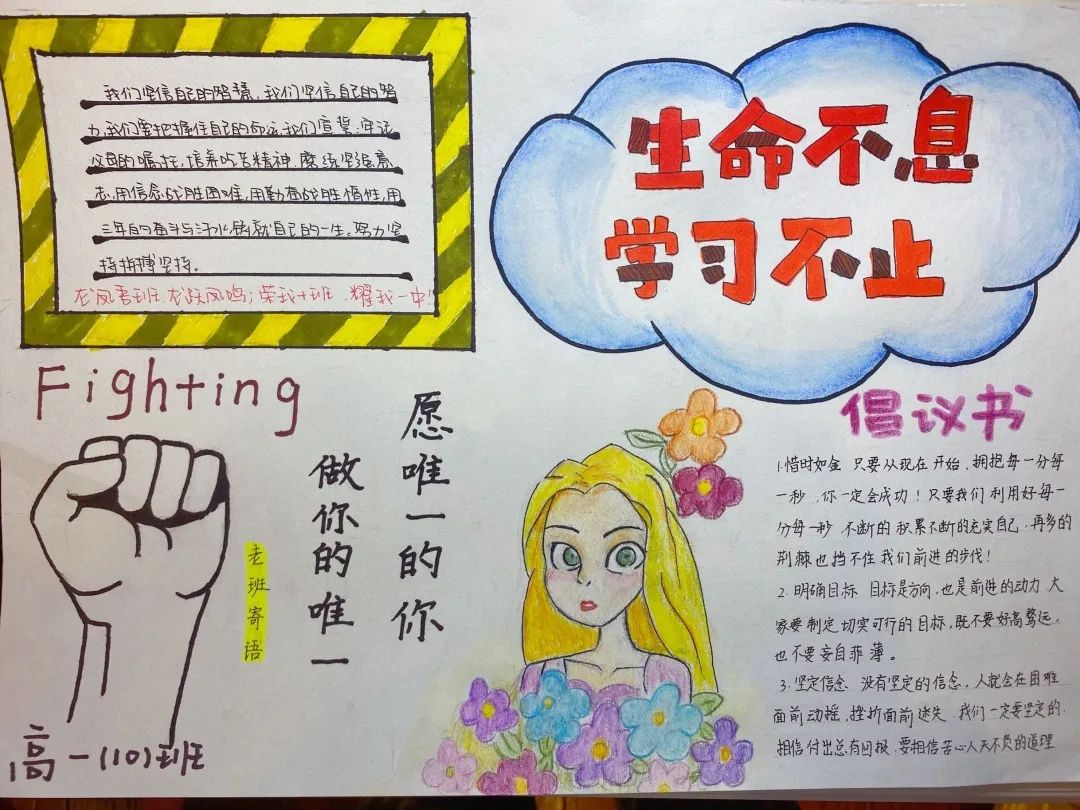 我们坚信自己的智慧，我们坚信自己的努
力，我们要把握住自己的命运，我们宣誓：牢记
父母的嘱托，培养吃苦精神，磨练坚强意
志，用信念战胜困难，用勤奋战胜惰性，用
三年的奋斗与汗水铸就自己的一生。努力坚
持拼搏坚持。
龙凤青班，龙跃凤鸣；荣我十班，耀我一中！
生命不息
学习不止
Fighting
愿唯一的你
做你的唯一
老班寄语
高一(10)班
倡议书
1.惜时如金 只要从现在开始，拥抱每一分每
一秒，你一定会成功！只要我们利用好每一
分每一秒，不断的积累不断的充实自己，再多的
荆棘也挡不住我们前进的步伐！
2.明确目标 目标是方向，也是前进的动力 大
家要制定切实可行的目标，既不要好高骛远，
也不要妄自菲薄。
3.坚定信念、没有坚定的信念，人就会在困难
面前动摇，挫折面前迷失，我们一定要坚定的，
相信付出总有回报，要相信苦心人天不负的道理